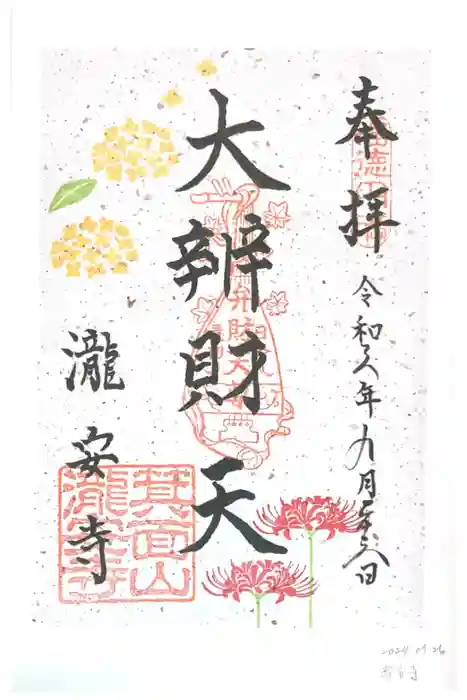 奉拝
令和六年九月二十六日
大辨財天
瀧安寺
箕面山
瀧安寺
2024 09 26